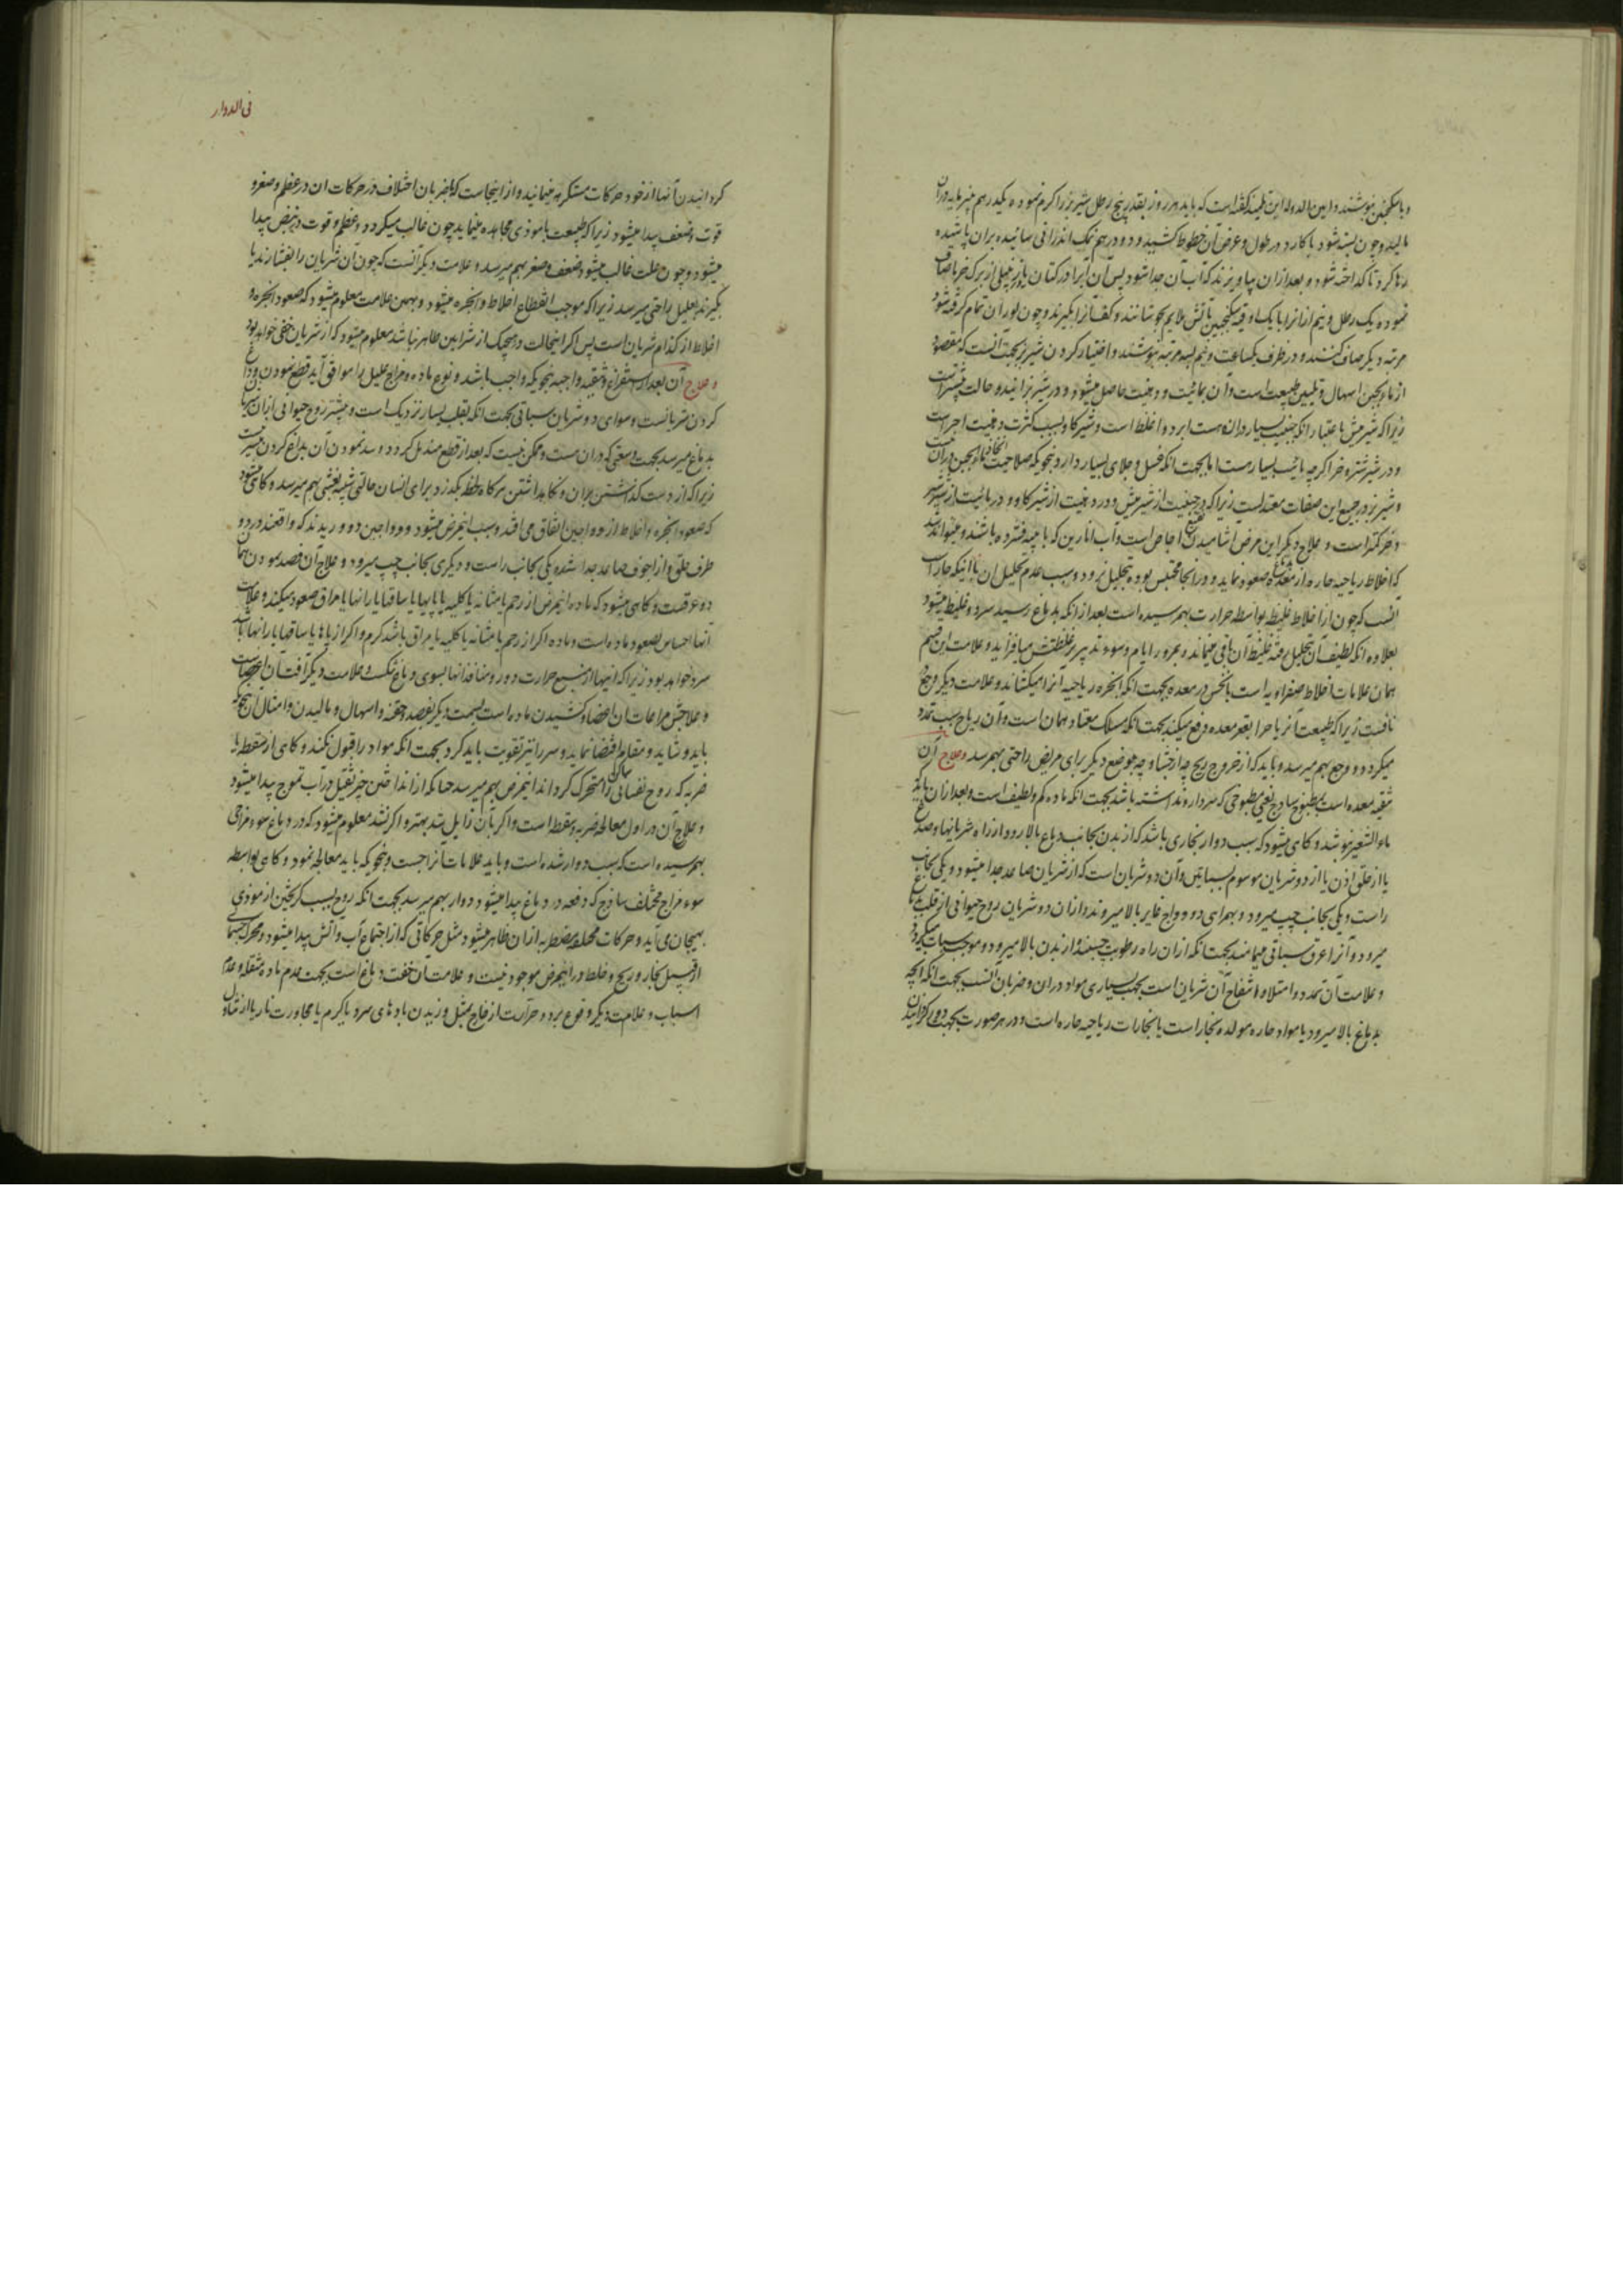 و با سکنجبین بنوشند و ابن الدوله ابن تلمیذ گفته است که باید هر روز بقدر پنج رطل شیر بز را گرم نموده یکدرهم پنیرمایه در آن
مالید و چون بسته شود با کارد در طول و عرض آن خطوط کشید و دو درهم نمک اندرانی سائیده بران پاشیده
رها کرد تا گداخته شود و بعد ازان بیاویزند که آب آن جدا شود پس آن آبرا در کتان
نموده یک رطل و نیم ازانرا با یک اوقیه سکنجبین بآتش ملایم بجوشانند و کف آنرا بگیرند و چون آن تمام گرفته شود
مرتبه دیگر صاف کنند و در ظرف یکساعت و نیم بسه مرتبه بنوشند و اختیار کردن شیر بز بجهت آنست که مقصود
از ماءالجبن اسهال و تلیین طبیعت است و آن بمائیت و دهنیت حاصل میشود و در شیر بز
زیرا که شیر میش باعتبار آنکه جبنیت بسیار دران هست ابرد و اغلظ است و شیر گاو بسبب کثرت دهنیت احر است
و در شیر شتر و خر اگرچه مائیت بسیار هست اما بجهت آنکه غسل و جلای بسیار دارد بنحوی که صلاحیت اتخاذ ماءالجبن دران نیست
و شیر بز در جمیع این صفات معتدلست زیرا که در جبنیت از شیر میش و در دهنیت از شیر گاو و در مائیت از شیر شتر
و خر کمتر است و علاج دیگر این مرض آشامیدن نقیع اجاص است و آب انارین که با پیه فشرده باشند و میتواند شد
که اخلاط ریاحیه حاره از معده بدماغ صعود نماید و در آنجا محتبس بوده بتحلیل نرود و سبب عدم تحلیل آن با آنکه حار است
آنست که چون از اخلاط غلیظه بواسطه حرارت بهمرسیده است بعد از آنکه بدماغ رسید سرد و غلیظ میشود
بعلاوه آنکه لطیف آن بتحلیل رفته غلیظ آن باقی میماند و بمرور ایام و سوء تدبیر بر غلظتش میافزاید و علامت این قسم
همان علامات اخلاط صفراویه است با نخس در معده بجهت آنکه ابخره ریاحیه آنرا میکشاند و علامت دیگر وجع
نافست زیرا که طبیعت آن ریاح را بقعر معده دفع میکند بجهت آنکه مسلک معتاد همان است و آن ریاح سبب تمدد
میگردد و وجع بهم میرسد و باید که از خروج ریح چه از جشا و چه بموضع دیگر برای مریض راحتی بهمرسد و علاج آن
تنقیه معده است بمطبوخ سازج یعنی مطبوخی که سرد دارو نداشته باشد بجهت آنکه ماده کم و لطیف است و بعد ازان باید
ماءالشعیر نوشد و گاهی میشود که سبب دوار بخاری باشد که از بدن بجانب دماغ بالا رود از راه شریانها و صدغ
یا از خلف اذن یا از دو شریان موسوم بسباتین و آن دو شریان است که از شریان صاعد جدا میشود و یکی بجانب
راست و یکی بجانب چپ میرود و بهمراهی دو وداج غایر بالا میروند و ازان دو شریان روح حیوانی از قلب بدماغ
میرود و آنرا عرق سباتی مینامند بجهت آنکه ازان راه رطوبت چسبنده از بدن بالا میرود و موجب سبات میگردد
و علامت آن تمدد و امتلاء و انتفاخ آن شریان است بجهت بسیاری مواد دران و ضربان آنست بجهت آنکه آنچه
بدماغ بالا میرود یا مواد حاره مولده بخار است یا بخارات ریاحیه حاره است و در هر صورت بجهت دور گردانیدن
فی الدوار
گردانیدن آنها از خود حرکات متنکره مینمایند و از اینجاست که باضربان اختلاف در حرکات ان در عظم و صغر و
قوت و ضعف پیدا میشود زیرا که طبیعت با موذی مجاهده مینماید چون غالب میگردد عظم و قوت در نبض پیدا
میشود و چون علت غالب میشود ضعف و صغر بهم میرسد و علامت دیگر آنست که چون آن شریان را بفشارند یا
بگیرند بعلیل راحتی میرسد زیرا که موجب انقطاع اخلاط و ابخره میشود و بهمین علامت معلوم میشود که صعود ابخره و
اخلاط از کدام شریان است پس اگر این حالت در هیچیک از شراین ظاهر نباشد معلوم میشود که از شریان خفی خواهد بود
و علاج آن بعد از استفراغ و تنقیه واجبه بنحوی که واجب باشد و نوع ماده و مزاج علیل را موافق آید قطع نمودن و داغ
کردن شریانست و سوای دو شریان سباتی بجهت آنکه بقلب بسیار نزدیک است و بیشتر روح حیوانی ازان شریانها
بدماغ میرسد بجهت وسعتی که دران هست و ممکن نیست که بعد از قطع مندمل گردد و سد نمودن آن بداغ کردن میسر نیست
زیرا که از دست گذاشتن بران و نگاهداشتن هرگاه لحظه بگذرد برای انسان حالتی شبیه بغشی بهم میرسد و گاهی میشود
که صعود ابخره و اخلاط از دو وداجین اتفاق می افتد و سبب این مرض میشود و وداجین دو وریدند که واقعند در دو
طرف حلق و از اجوف صاعد جدا شده یکی بجانب راست و دیگری بجانب چپ میرود و علاج آن فصد نمودن همان
دو عرقست و گاهی میشود که ماده این مرض از رحم یا مثانه یا کلیه یا پاها یا ساقها یا رانها یا مراق صعود میکند و علامت
آنها احساس بصعود ماده است و ماده اگر از رحم یا مثانه یا کلیه یا مراق باشد گرم و اگر از پاها یا ساقها یا رانها باشد
سرد خواهد بود زیرا که اینها از منبع حرارت دور و منافذ آنها بسوی دماغ تنگست و علامت دیگر آفت آن اعضاست
و علاجش مراعات آن اعضا و کشیدن ماده است بسمت دیگر بفصد و حقنه و اسهال و مالیدن و امثال آن بنحوی که
باید و شاید و مقام اقتضا نماید و سر را نیز تقویت باید کرد بجهت آنکه مواد را قبول نکند و گاهی از سقطه یا
ضربه که روح نفسانی ساکن را متحرک گرداند این مرض بهم میرسد چنانکه از انداختن چیز ثقیل در آب تموج پیدا میشود
و علاج آن در اول معالجه ضربه و سقطه است و اگر بآن زایل شد بهتر و اگر نشد معلوم میشود که در دماغ سوء مزاجی
بهمرسیده است که سبب دوار شده است و باید علامات آنرا جست و بنحوی که باید معالجه نمود و گاهی بواسطه
سوء مزاج مختلف ساذج که دفعه در دماغ پیدا میشود دوار بهم میرسد بجهت آنکه روح بسبب گریختن از موذی
بهیجان می آید و حرکات مختلفه مضطربه ازان ظاهر میشود مثل حرکاتی که از اجتماع آب و آتش پیدا میشود و محرک جسمانی
از قبیل بخار و ریح و خلط در این مرض موجود نیست و علامت آن خفت دماغ است بجهت عدم ماده مثقله و عدم
اسباب و علامت دیگر وقوع برد و حرارت از خارج مثل وزیدن بادهای سرد یا گرم یا مجاورت نار یا از تناول